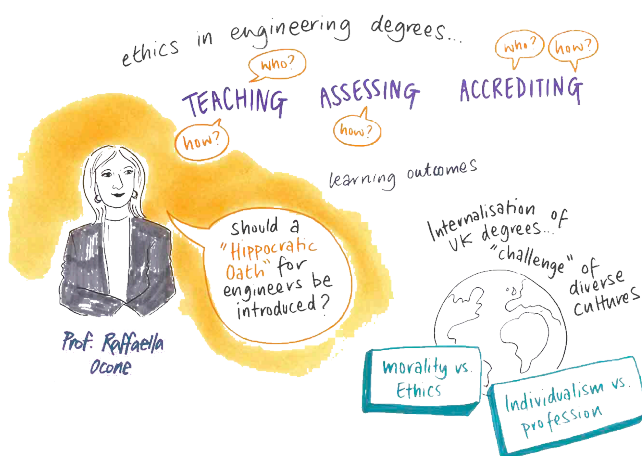 ethics in engineering degrees...
who?
who?
how?
TEACHING
ASSESSING
ACCREDITING
how?
how?
learning outcomes
Should a
"Hippocratic
Oath" for
engineers be
introduced?
Prof. Raffaella
Ocone
Internalisation of
UK degrees...
"challenge" of
diverse
cultures
morality vs.
Ethics
Individualism vs.
profession